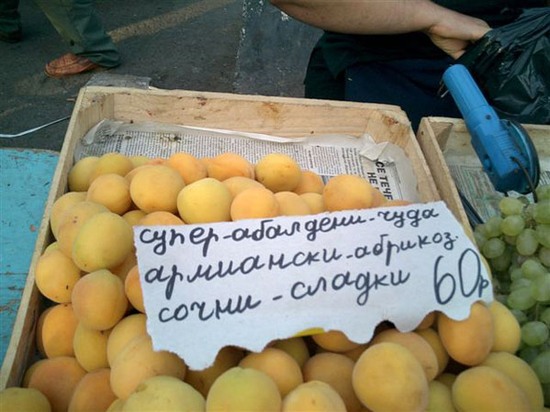 супер-абалдени-чуда
армиански-абрикоз.
сочни-сладки 60р
СЕ ТЕЧЕ
НЕ